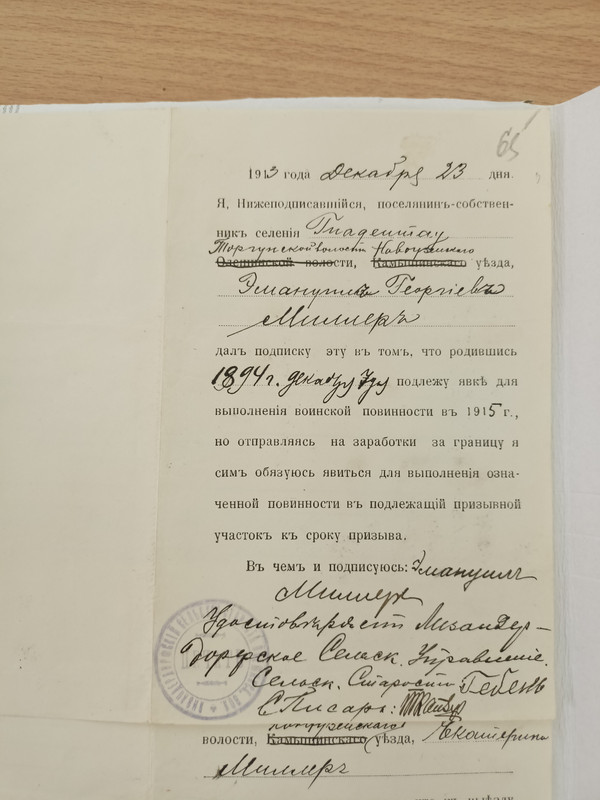 65
1913 года Декабря 23 дня.
Я, Нижеподписавшійся, поселянинъ-собствен-
никъ селенія Гнадентау
Торгунской волости Новоузенскаго
Олешинской волости, Камышинскаго уѣзда,
Эмануилъ Георгіевъ
Миллеръ
далъ подписку эту въ томъ, что родившись
1894 г. декабря 7 дня подлежу явкѣ для
выполненія воинской повинности въ 1915 г.,
но отправляясь на заработки за границу я
симъ обязуюсь явиться для выполненія озна-
ченной повинности въ подлежащій призывной
участокъ къ сроку призыва.
Въ чемъ и подписуюсь: Эмануилъ
Миллеръ
Удостовѣряетъ Лизандер-
дорфское Сельск. Управленіе.
Сельск. Староста:
С. Писарь:
волости, Камышинскаго уѣзда, Екатерина
Миллеръ